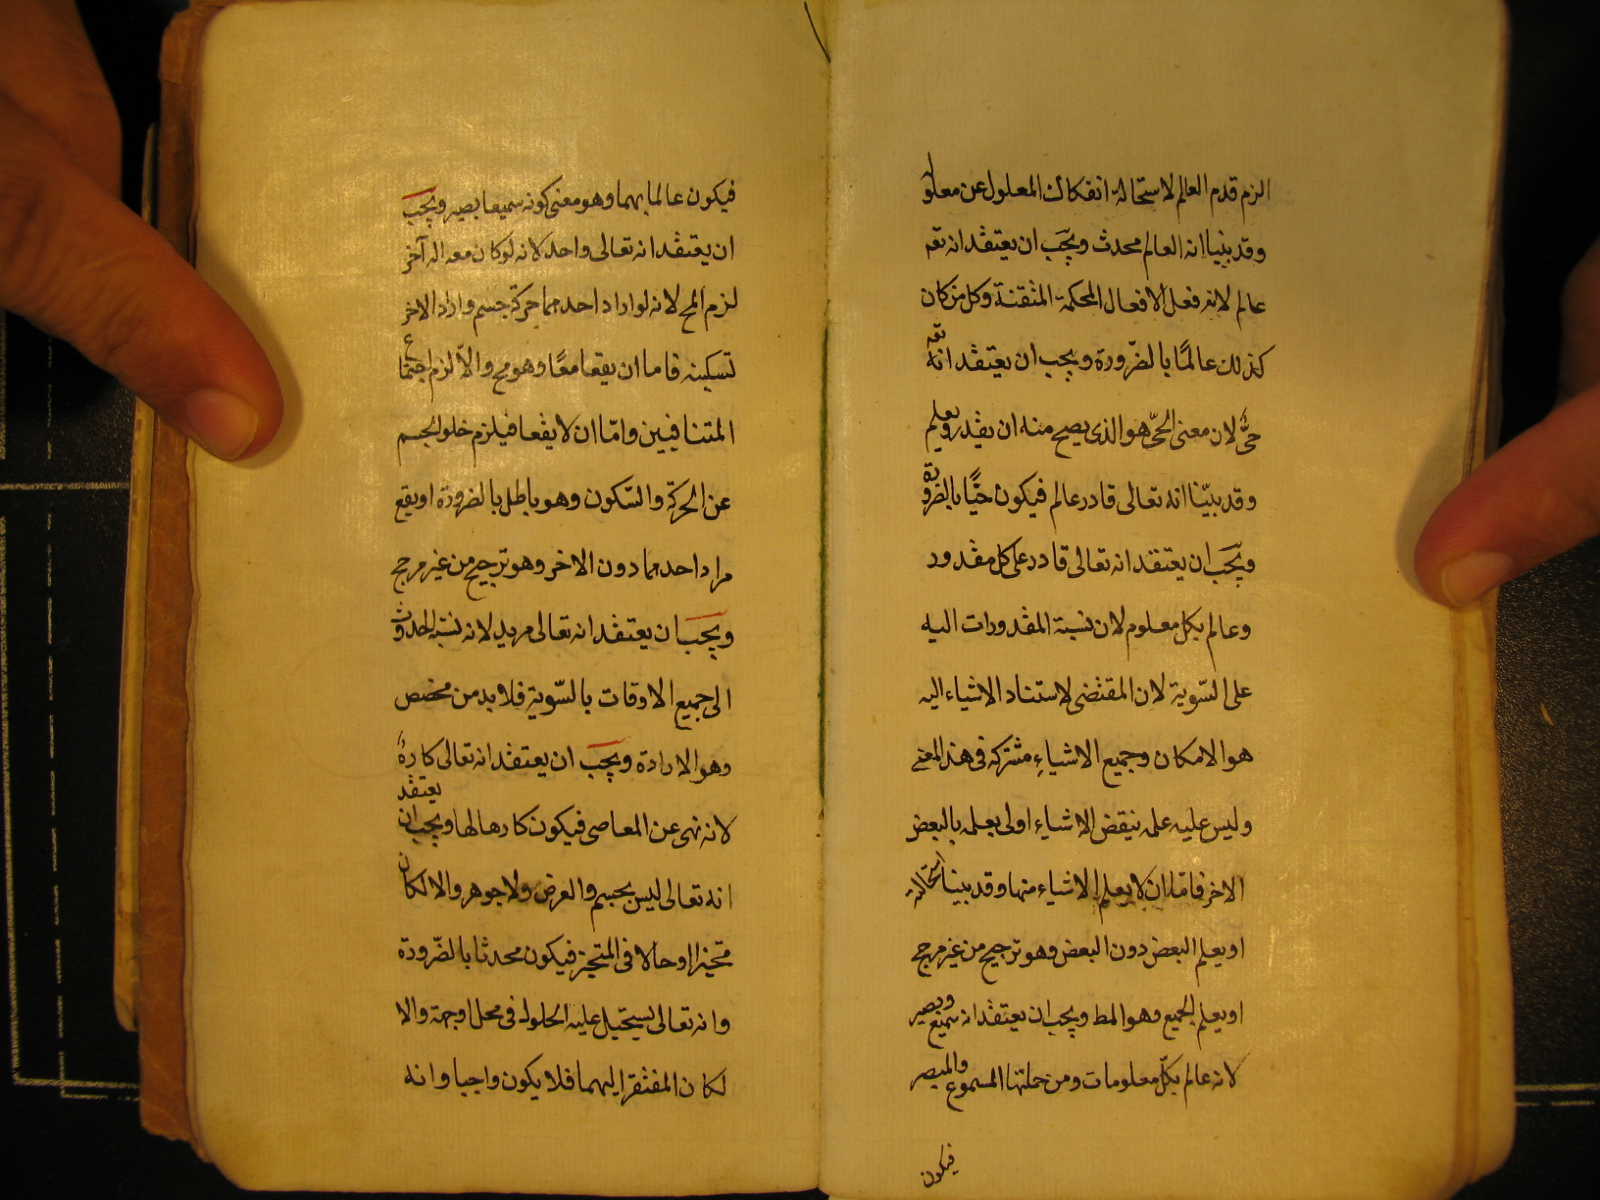 الزم قدم العالم لاستحالة انفكاك المعلول عن معلو
وقد بينا انه العالم محدث ويجب ان يعتقد انه تعم
عالم لانه فعل الافعال المحكمة المتقنة وكل من كان
كذلك عالمًا بالضّرورة ويجب ان يعتقد انه تعم
حىٌّ لان معنى الحىّ هو الذى يصح منه ان يقدر ويعلم
وقد بيّنا انه تعالى قادر عالم فيكون حيًّا بالضرورة
ويجب ان يعتقد انه تعالى قادر على كل مقدور
وعالم بكل معلوم لان نسبة المقدورات اليه
على السّوية لان المقتضى لاستناد الاشياء اليه
هو الامكان وجميع الاشياء مشتركه فى هذ المعنى
وليس عليه علمه ببعض الاشياء اولى بعلمه بالبعض
الاخر فامّا ان لا يعلم الاشياء منها وقد بينا استحالته
او يعلم البعض دون البعض وهو ترجيح من غير مرجح
او يعلم الجميع وهو المط ويجب ان يعتقد انه سميع وبصير
لانه عالم بكلّ معلومات ومن جملتها المسموع والمبصر
فيكون
فيكون عالما بهما وهو معنى كونه سميعا بصير ويجب
ان يعتقد انه تعالى واحد لانه لو كان معه اله آخر
لزم المح لانه لو اراد احدهما حركة جسم واراد الاخر
تسكينه فاما ان يقعا معًا وهو مح والاّ لزم اجتماع
المتنافيين وامّا ان لا يقعا فيلزم خلو الجسم
عن الحركة والسّكون وهو باطل بالضرورة او يقع
مراد احدهما دون الاخر وهو ترجيح من غير مرجح
ويجب ان يعتقد انه تعالى مريد لانه نسبة الحدوث
الى جميع الاوقات بالسّوية فلا بد من مخصص
وهو الارادة ويجب ان يعتقد انه تعالى كارهٌ
لانه نهى عن المعاصى فيكون كارها لها ويجب ان يعتقد
انه تعالى ليس بجسم والعرض ولا جوهر والا لكان
متحيزا او حالا فى المتحيز فيكون محدثا بالضّرورة
وانه تعالى يستحيل عليه الحلول فى محل او جهة والا
لكان المفتقر اليهما فلا يكون واجبا وانه